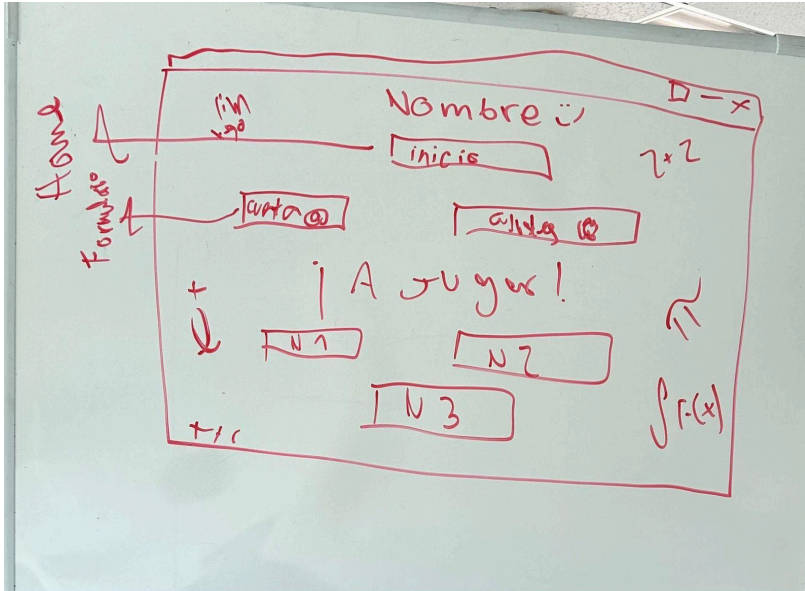 Home
Formulario
lim
x→∞
Nombre
inicio
2+2
cuenta
ajustes
¡A jugar!
π
N1
N2
N3
∫F(x)